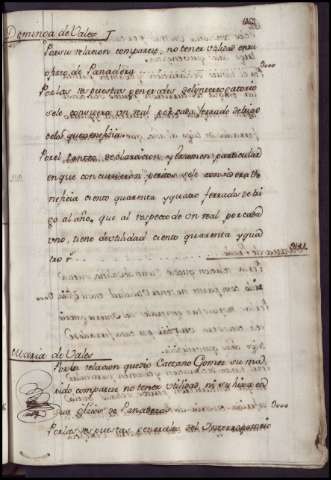 Dominga de Vales
Por su relacion comparece, no tener utilidad en su
ofizio de Panadera
Por las respuestas generales del Interrogatorio
se le considera un real por cada ferrado de trigo
Por el tanteo, declaracion, y Examen particular
en que concurrieron peritos se le considera be-
neficia ciento quarenta y quatro ferrados de tri-
go al año, que al respecto de un real por cada
uno, tiene de utilidad ciento quarenta y qua
tro r.s
Maria de Vales
Por la relacion que dio Caetano Gomez su ma-
rido comparece no tener utilidad, ni su hija en
su ofizio de Panaderas
Por las respuestas generales del Interrogatorio